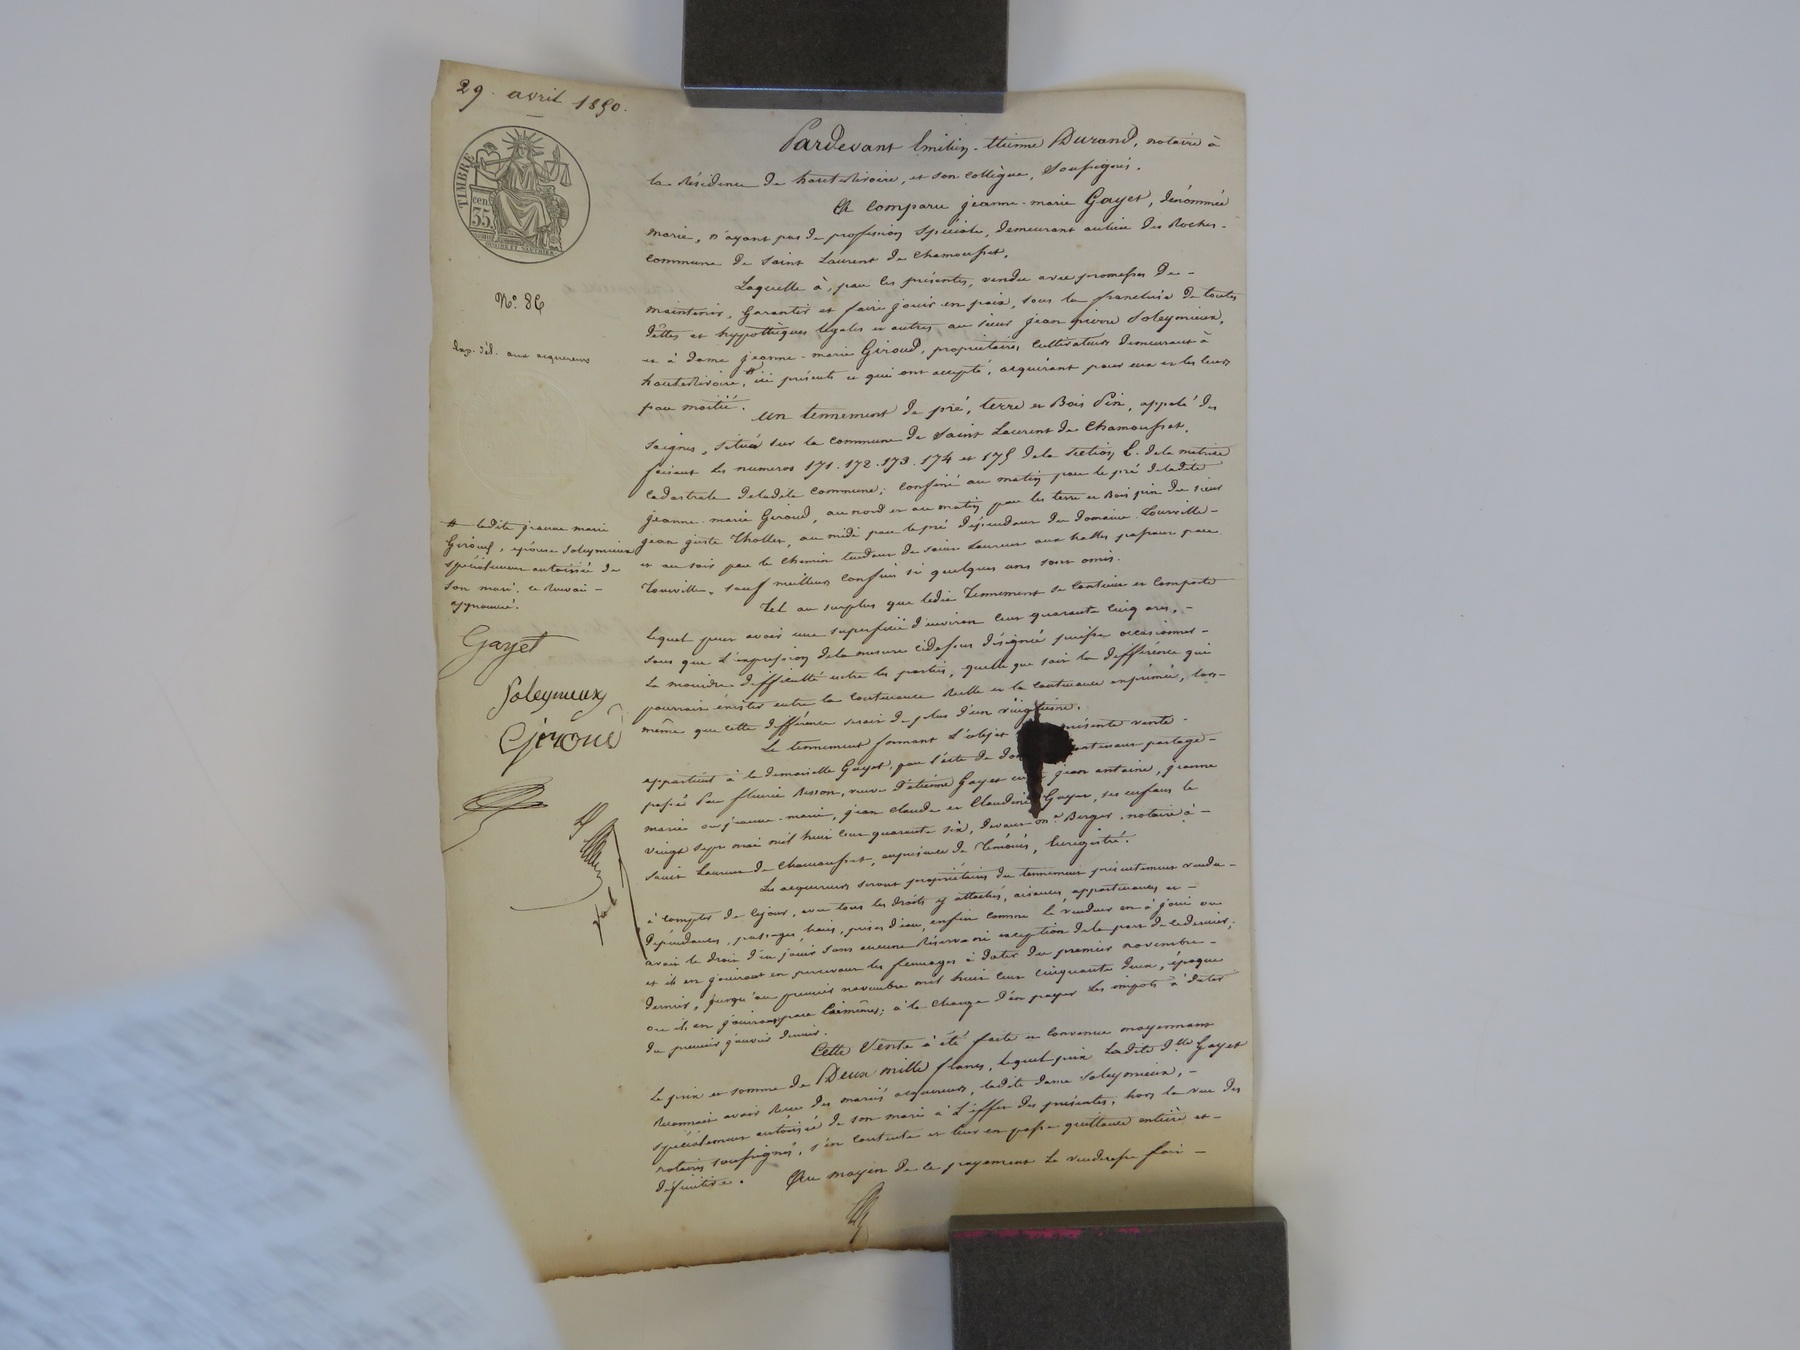 29. avril 1850.
TIMBRE
cen
35
N° 86
Exp. dél. aux acquereurs
Pardevant Emilien-Etienne Durand, notaire à
la Résidence de hauterivoire, et son collègue, soussignés.
A Comparu jeanne-marie Gayet, dénommée
marie, n'ayant pas de profession spéciale, demeurant au lieu des Roches-
commune de saint Laurent de Chamousset.
Laquelle à, par les présentes, vendu avec promesse de-
maintenir, garantir et faire jouir en paix, sous la franchise de toutes
dêttes et hyppothèques légales et autres au sieur jean pierre Soleymieux,
et à dame jeanne-marie Giroud, propriétaires cultivateurs demeurant à
hauterivoire, # ici présents et qui ont accepté, acquérant pour eux et les leurs
par moitié.
Un tennement de pré, terre et Bois Pin, appelé des
Saignes, situé sur la commune de Saint Laurent de Chamousset,
faisant les numeros 171. 172. 173. 174 et 175 de la section E. de la matrice
cadastrale de ladite commune; confiné au matin par le pré de ladite
jeanne-marie Giroud, au nord et au matin par les terre et Bois pin du sieur
jean juste Thollet, au midi par le pré dépendant du domaine Tourville-
et au soir par le chemin tendant de saint Laurent aux halles passant par
Tourville, sauf meilleurs confins si quelques uns sont omis.
Tel au surplus que ledit Tennement se contient et comporte
lequel peut avoir une superficie d'environ cent quarante cinq ares,-
sans que l'expression de la mesure cidessus désignée puisse occasionner-
la moindre difficulté entre les parties, quelle que soit la différence qui
pourrait éxister entre la contenance réelle et la contenance exprimée, lors-
même que cette différence serait de plus d'un vingtième.
Le tennement formant l'objet présente vente-
appartient à la demoiselle Gayet, par l'acte de contenant partage-
passés par fleurie Besson, veuve d'étienne Gayet jean antoine, jeanne
marie ou jeanne-marie, jean claude et Claudine Gayet, ses enfans le
vingt sept mai mil huit cent quarante six, devant me Berger, notaire à-
saint Laurent de Chamousset, en présence de Témoins, Enregistré.
Les acquereurs seront propriétaires du tennement présentement vendu-
à compter de cejour, avec tous les droits y attachés, aisances, appartenances et-
dépendances, passages, haies, prises d'eau, enfin comme le vendeur en à joui ou
avait le droit d'en jouir sans aucune Réserve ni exception de la part de ce dernier;
et ils en jouiront en percevant les fermages à dater du premier novembre-
dernier, jusqu'au premier novembre mil huit cent cinquante deux, époque
ou ils en jouiront par Euxmêmes; à la charge d'en payer les impots à dater
du premier janvier dernier.
Cette Vente à été faite et convenue moyennant
le prix et somme de Deux mille francs, lequel prix Ladite dlle Gayet
Reconnait avoir Reçu des mariés acquereurs, ladite dame Soleymieux,-
spécialement autorisée de son mari à l'effet des présentes, hors la vue des
notaires soussignés, s'en contente et leur en passe quittance entière et-
définitive.
Au moyen de ce payement La venderesse fait-
# ladite jeanne marie
Giroud, épouse Soleymieux
spécialement autorisée de
son mari. ce Renvoi-
approuvé.
Gayet
Soleymieux
Giroud